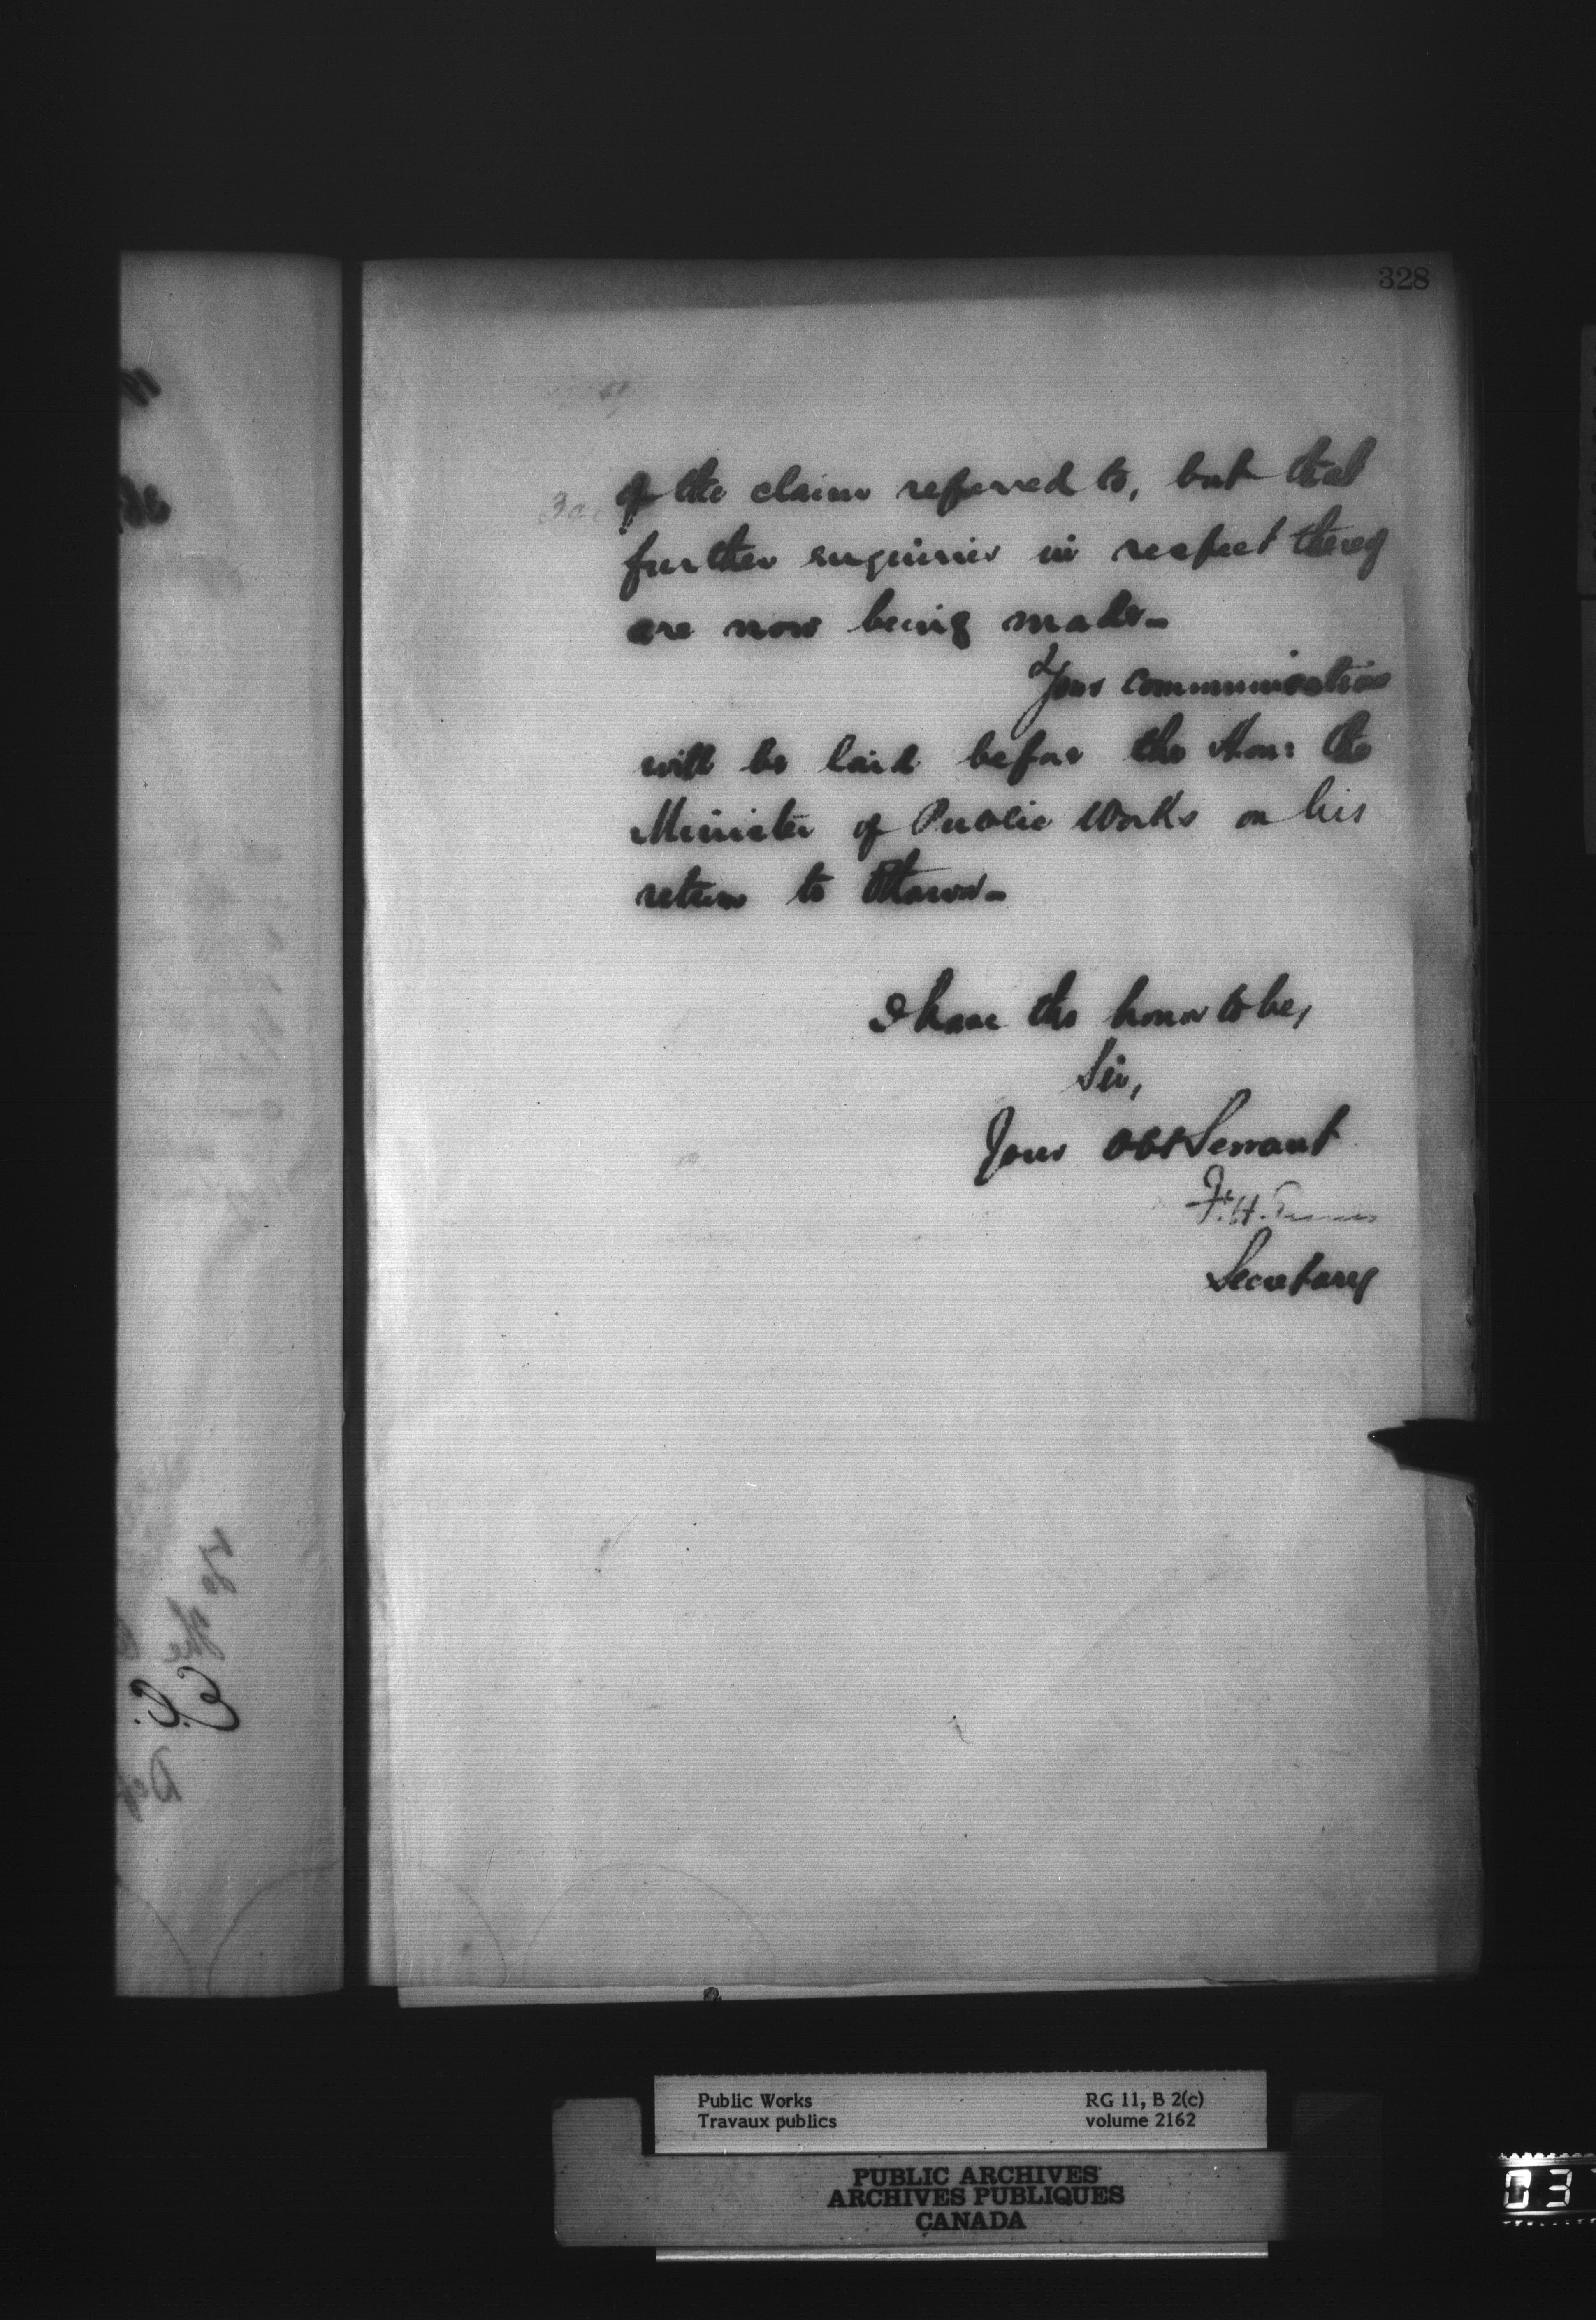 328
of the claim referred to, but that
further enquiries in respect thereof
are now being made-
Your communication
will be laid before the Hon: the
Minister of Public Works on his
return to Ottawa-
I have the honor to be,
Sir,
Your Obt Servant
F. H. Ennis
Secretary
Public Works
Travaux publics
RG 11, B 2(c)
volume 2162
PUBLIC ARCHIVES
ARCHIVES PUBLIQUES
CANADA
03